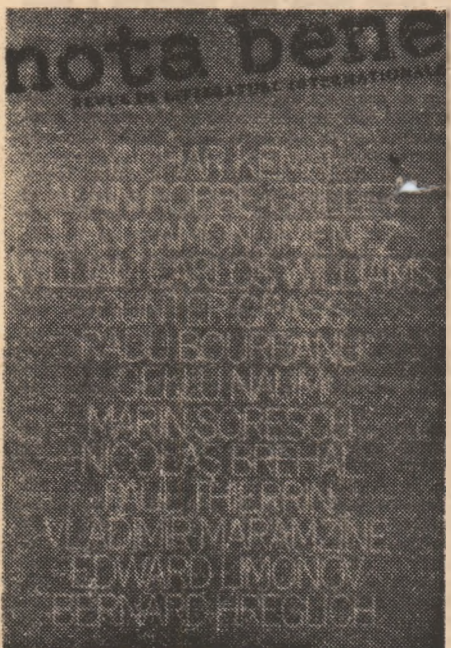 nota bene
REVUE DE LITTERATURE INTERNATIONALE
YACHAR KEMAL
ALAIN ROBBE-GRILLET
JUAN RAMON JIMENEZ
WILLIAM CARLOS WILLIAMS
GUNTER GRASS
RADU BOUREANU
GELLU NAUM
MARIN SORESCU
NICOLAS BREHAL
PAUL THIERRIN
VLADIMIR MARAMZINE
EDWARD LIMONOV
BERNARD